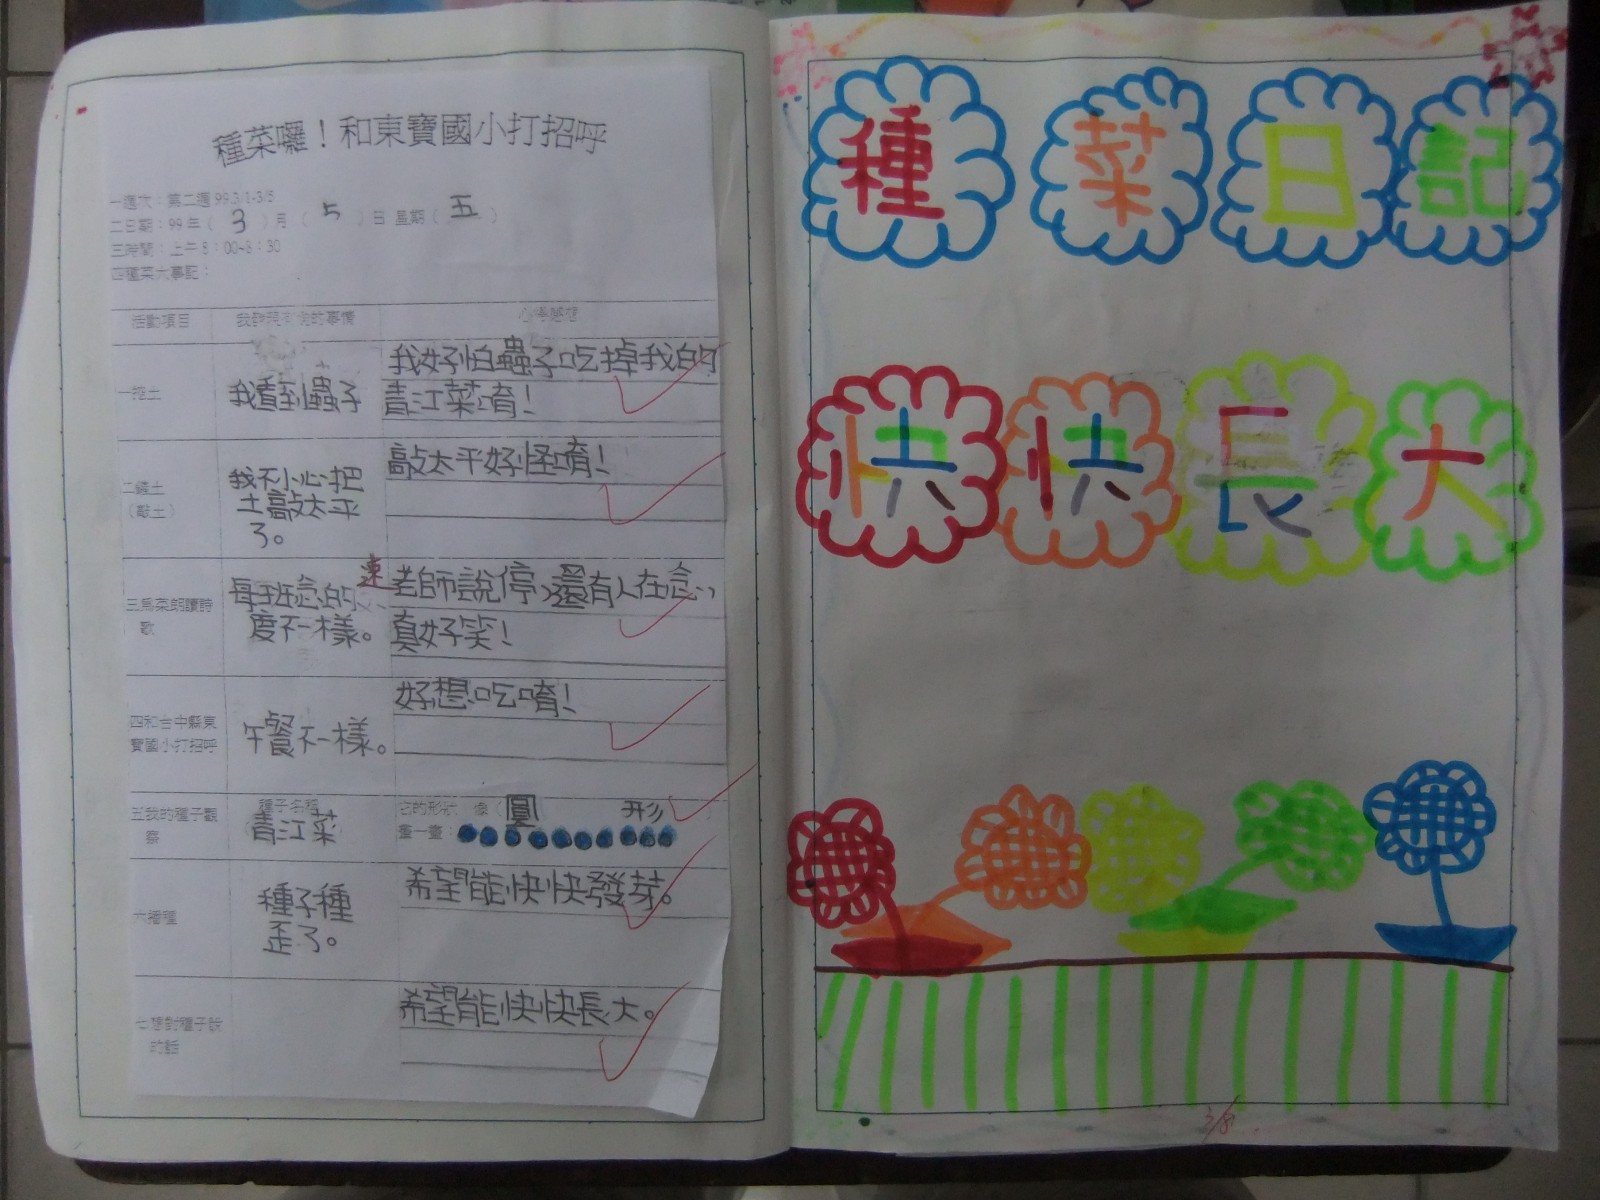 種菜囉！和東寶國小打招呼
一週次：第二週 99.3/1-3/5
二日期：99年（3）月（5）日 星期（五）
三時間：上午8：00-8：30
四種菜大事記：
活動項目 我
心得感想
一挖土
我看到蟲子
我好怕蟲子吃掉我的
青江菜唷！
二鋪土
（敲土）
我不小心把
土敲太平
了。
敲太平好怪唷！
三為菜朗讀詩
歌
每班念的速
度不一樣。
老師說停，還有人在念，
真好笑！
四和台中縣東
寶國小打招呼
午餐不一樣。
好想吃唷！
五我的種子觀
察
種子名稱
青江菜
它的形狀：像（圓形）
畫一畫：
六播種
種子種
歪了。
希望能快快發芽。
七想對種子說
的話
希望能快快長大。
種菜日記
快快長大
3/8